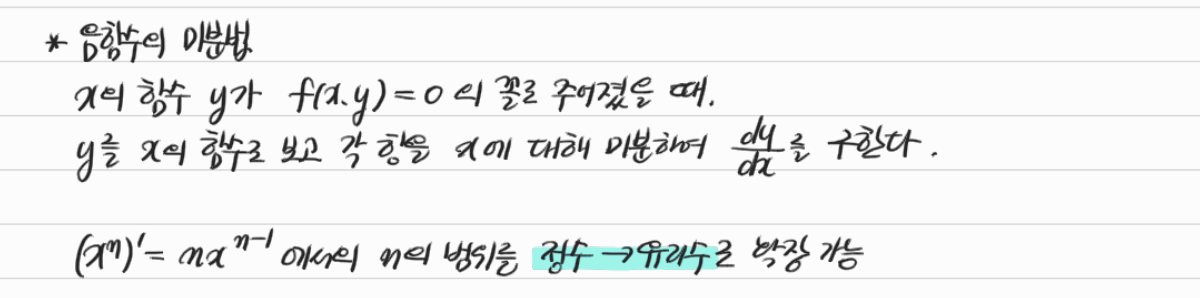 * 음함수의 미분법
x의 함수 y가 f(x.y)=0의 꼴로 주어졌을 때.
y를 x의 함수로 보고 각 항을 x에 대해 미분하여 dy/dx를 구한다.
(xⁿ)'=nxⁿ⁻¹에서의 n의 범위를 정수→유리수로 확장 가능